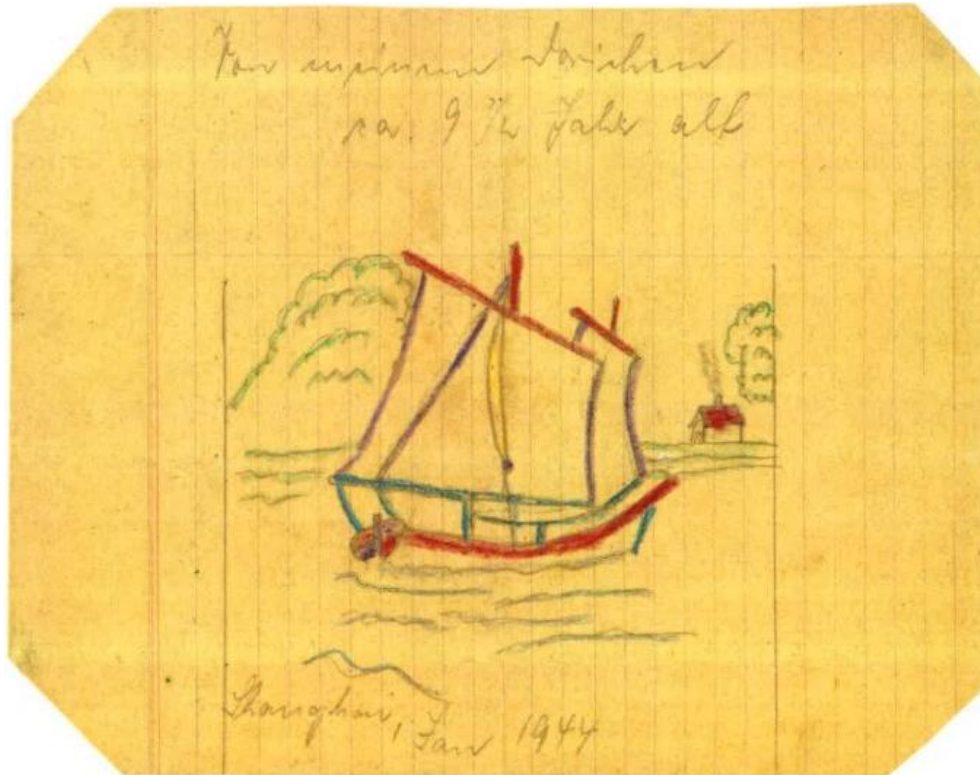 Von meinem Dorichen
ca. 9 1/2 Jahr alt
Shanghai, Jan 1944